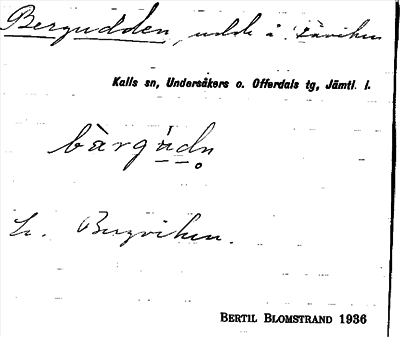 Bergudden, udde å Säviken
Kalls sn, Undersåkers o. Offerdals tg, Jämtl. l.
bàrgùdn̥
Bergviken.
BERTIL BLOMSTRAND 1936